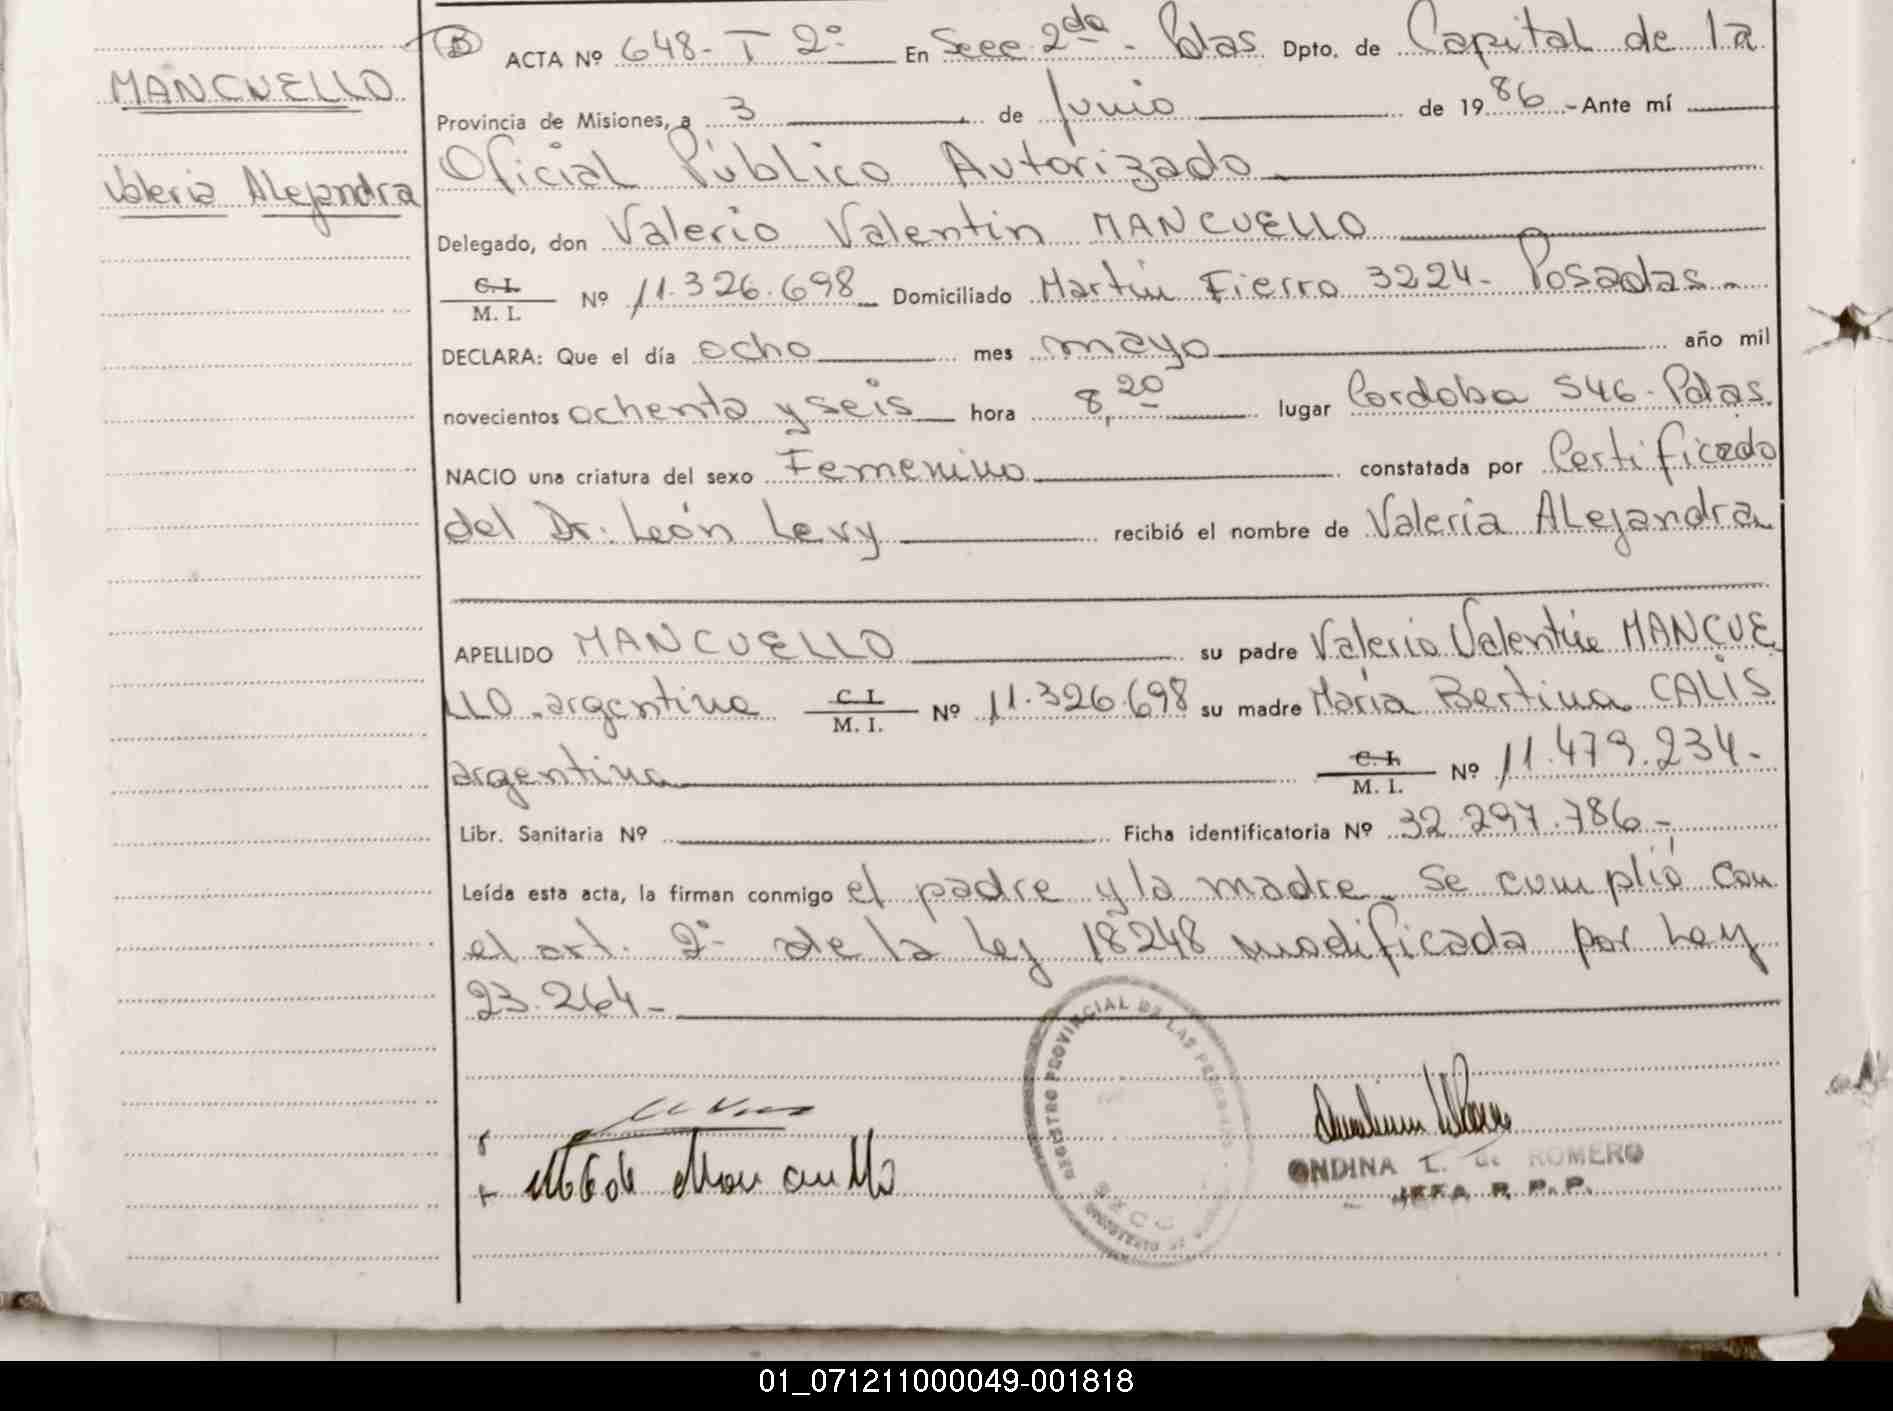 B ACTA Nº 648- T 2º En Secc. 2da - Pdas. Dpto. de Capital de la
MANCUELLO
Provincia de Misiones, a 3 de Junio de 1986 - Ante mí
Valeria Alejandra
Oficial Público Autorizado
Delegado, don Valerio Valentin MANCUELLO
C. I.
M. I. Nº 11.326.698 Domiciliado Martín Fierro 3224- Posadas-
DECLARA: Que el día ocho mes mayo año mil
novecientos ochenta y seis hora 8,20 lugar Cordoba 546- Pdas.
NACIO una criatura del sexo Femenino constatada por Certificado
del Dr. León Levy recibió el nombre de Valeria Alejandra
APELLIDO MANCUELLO su padre Valerio Valentín MANCUE
LLO - argentino C. I. M. I. Nº 11.326.698 su madre María Bertina CALIS
argentina C. I. M. I. Nº 11.479.234-
Libr. Sanitaria Nº Ficha identificatoria Nº 32.297.786-
Leída esta acta, la firman conmigo el padre y la madre- Se cumplió con
el art. 2º de la Ley 18248 modificada por Ley
23.264-
REGISTRO PROVINCIAL DE LAS PERSONAS
ONDINA L. de ROMERO
JEFA R. P. P.
01_071211000049-001818